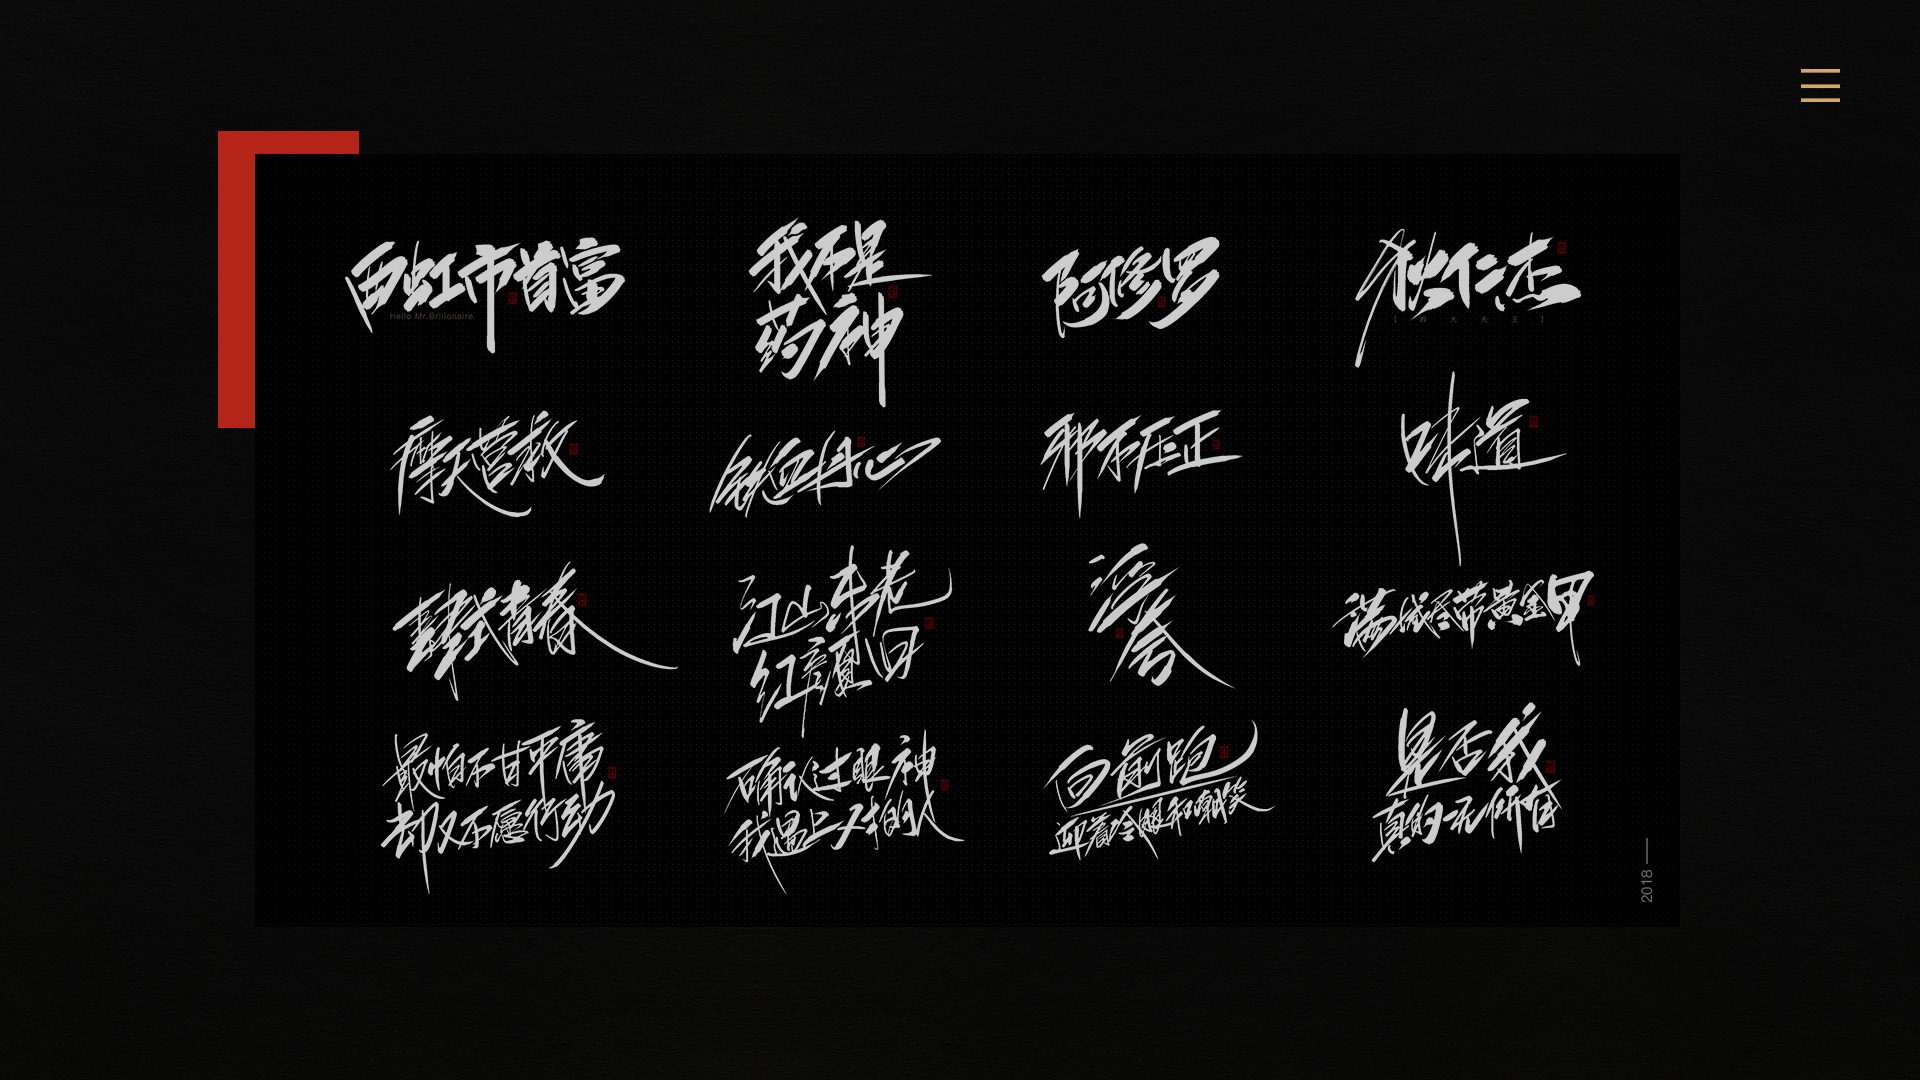 西虹市首富
Hello Mr.Brilionaire
我不是
药神
阿修罗
狄仁杰
【四大天王】
摩天营救
铁血丹心
邪不压正
味道
肆式青春
江山未老
红颜旧
浮夸
满城尽带黄金甲
最怕不甘平庸
却又不愿行动
确认过眼神
我遇上对的人
向前跑
迎着冷眼和嘲笑
是否我
真的一无所有
2018